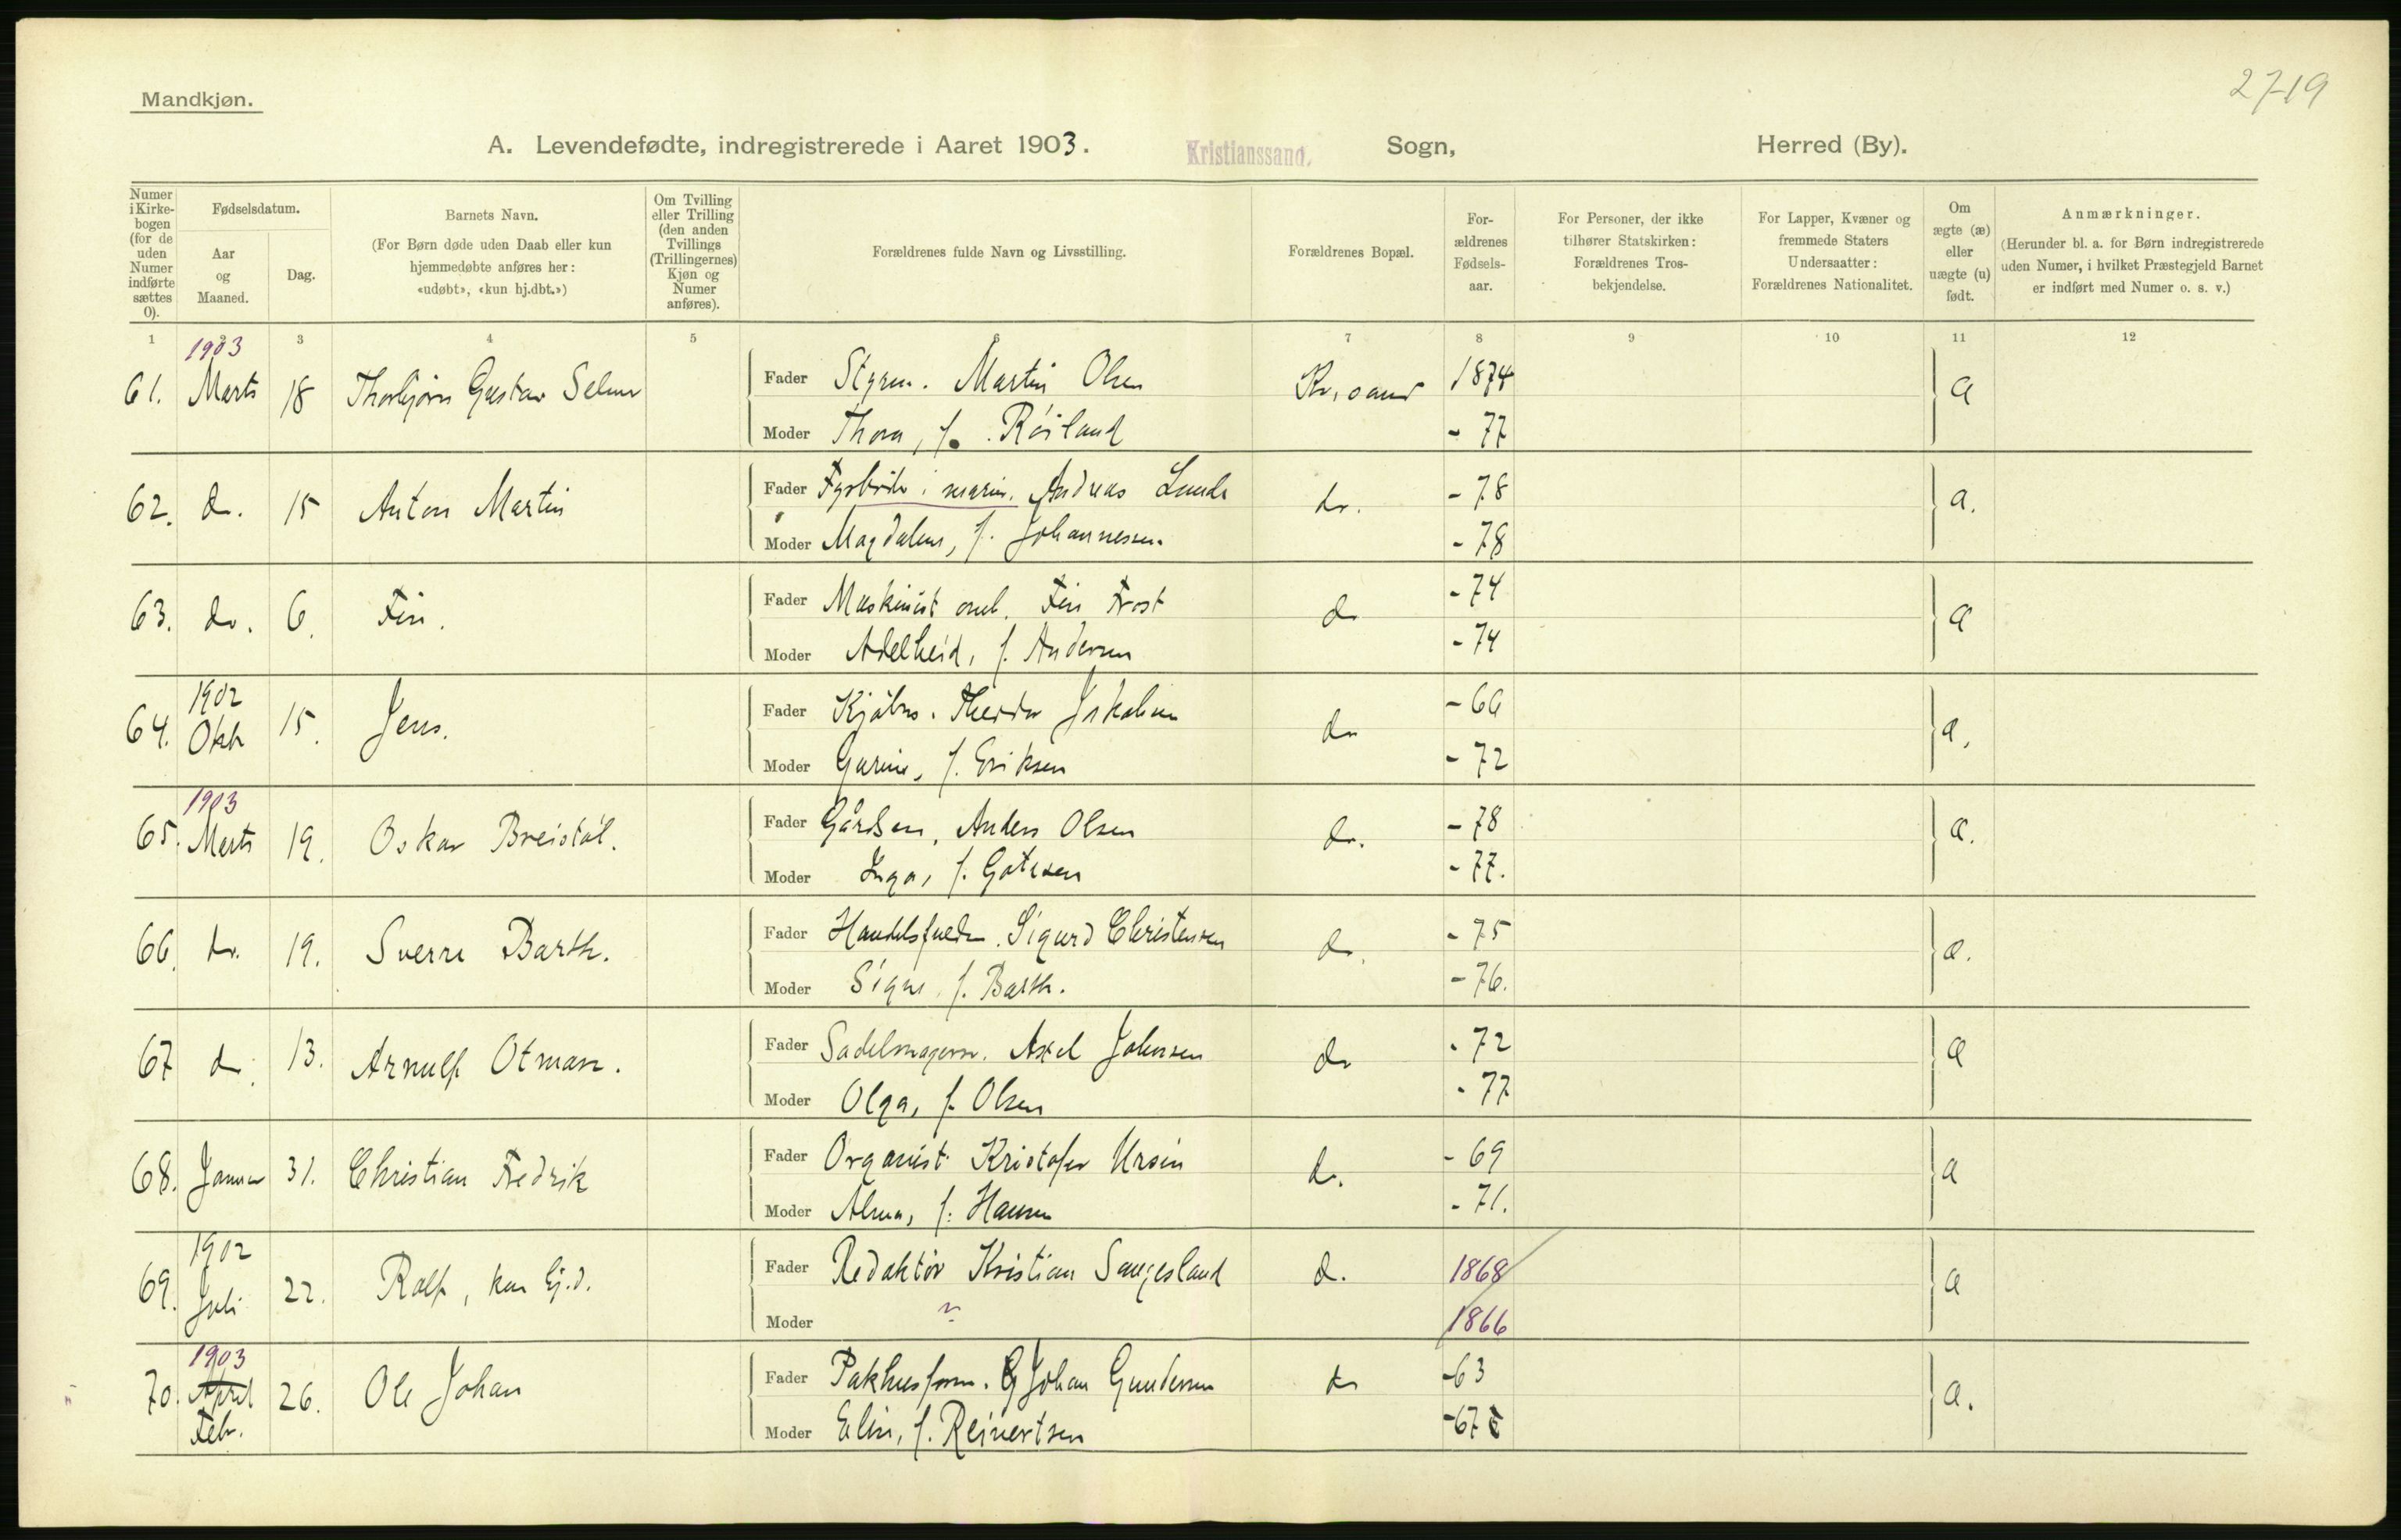 2719
Mandkjøn.
A. Levendefødte, indregistrerede i Aaret 1903. Kristianssand. Sogn, Herred (By).
Numer i Kirkebogen (for de uden Numer indførte sættes 0).
Fødselsdatum.
Aar og Maaned.
Dag.
Barnets Navn.
(For Børn døde uden Daab eller kun hjemmedøbte anføres her: «udøbt», «kun hj.dbt.»)
Om Tvilling eller Trilling (den anden Tvillings (Trillingernes) Kjøn og Numer anføres).
Forældrenes fulde Navn og Livsstilling.
Forældrenes Bopæl.
For-ældrenes Fødsels-aar.
For Personer, der ikke tilhører Statskirken: Forældrenes Tros-bekjendelse.
For Lapper, Kvæner og fremmede Staters Undersaatter: Forældrenes Nationalitet.
Om ægte (æ) eller uægte (u) født.
Anmærkninger.
(Herunder bl. a. for Børn indregistrerede uden Numer, i hvilket Præstegjeld Barnet er indført med Numer o. s. v.)
1 2 3 4 5 6 7 8 9 10 11 12
1903
61. Marts 18 Thorbjørn Gustav Selmer Fader Styrm. Martin Olsen Kr.sand 1874 æ
Moder Thora, f. Röiland - 77
62. do. 15 Anton Martin Fader Fyrböder i marin. Andreas Lunde do. - 78 æ.
Moder Magdalene, f. Johannessen. - 78
63. do. 6. Fin. Fader Maskinist Fin Frost do - 74 æ
Moder Adelheid, f. Andersen - 74
1902
64. Okt 15. Jens. Fader Kjøbm. Theodor Jakobsen do - 66 æ.
Moder Gurine, f. Eriksen - 72
1903
65. Marts 19. Oskar Breistöl. Fader Gårdbru. Anders Olsen do. - 78 æ.
Moder Inga, f. - 77.
66. do. 19. Sverre Barth. Fader Sigurd Christensen do. - 75 æ.
Moder Signe, f. Barth. - 76.
67 do. 13. Arnulf Otman. Fader Sadelmagersv. Axel Johnsen do - 72 æ
Moder Olga, f. Olsen - 77
68. Januar 31. Christian Fredrik Fader Organist Kristofer Ursin do. - 69 æ
Moder Alma, f. Hansen - 71.
1902
69. Juli 22. Rolf, kun hj.d. Fader Redaktör Kristian Sangesland d. 1868 æ
Moder 1866
1903
70. April 26. Ole Johan Fader Pakhusform. G Johan Gundersen do -63 æ.
Febr. Moder Elin, f. Reinertsen -67